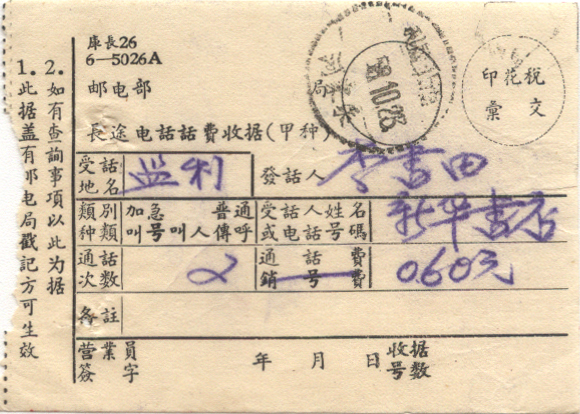 庫長26
6—5026A
邮电部
局
58.10.23
税花印
文彙
長途电話話費收据(甲种)
受話地名
监利
發話人
李書田
類別种類
加急 普通
叫号 叫人 傳呼
受話人姓名
或电話号碼
新华書店
通話次數
2
通話費
銷号費
0.60元
备註
营業員簽字
年 月 日
收据号數
1. 此据盖有邮电局戳記方可生效
2. 如有查詢事項以此为据